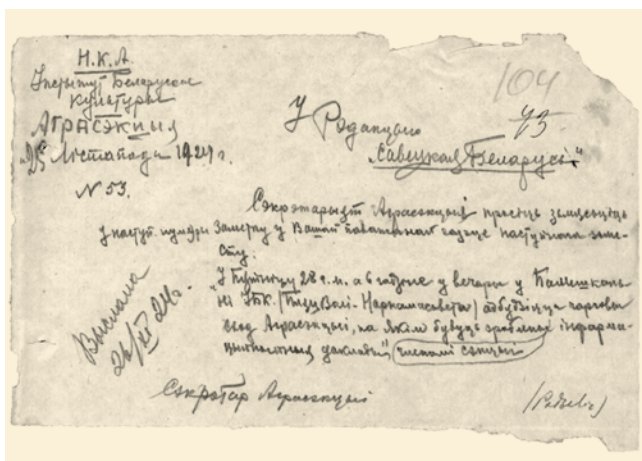 Н.К.А.
Інстытут Беларускае
культуры
АГРАСЭКЦЫЯ
"25" Лістапада 1924 г.
N 53.
104
73
У Рэдакцыю
„Савецкая Беларусі"
Сэкрэтарыят Аграсэкцыі просіць зьмясьціць
у наступ. нумары заметку у Вашай паважанай газэце наступнага зьме-
сту:
„У Пятніцу 28 г.м. а 6 гадзіне у вечары у Памешкань-
ні ІБК. адбудзецца чарговы
сход Аграсэкцыі, на якім будуць зроблены інфарма-
цыйныя даклады", членамі сэкцыі
Выслана
26/XI 24 г.
Сэкрэтар Аграсэкцыі